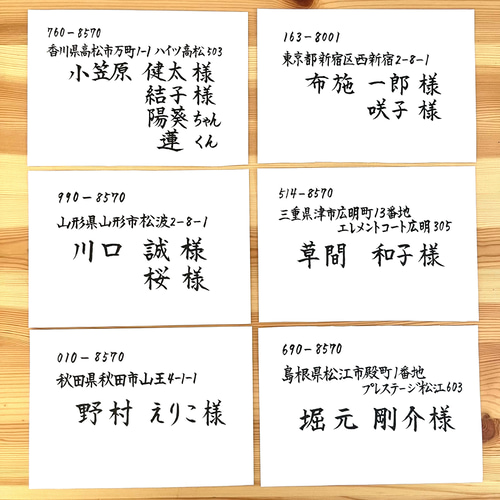 760-8570
香川県高松市万町1-1 ハイツ高松503
小笠原 健太様
結子様
陽葵ちゃん
蓮くん
163-8001
東京都新宿区西新宿2-8-1
布施 一郎様
咲子様
990-8570
山形県山形市松波2-8-1
川口 誠様
桜様
514-8570
三重県津市広明町13番地
エレメントコート広明305
草間 和子様
010-8570
秋田県秋田市山王4-1-1
野村えりこ様
690-8570
島根県松江市殿町1番地
プレステージ松江603
堀元 剛介様